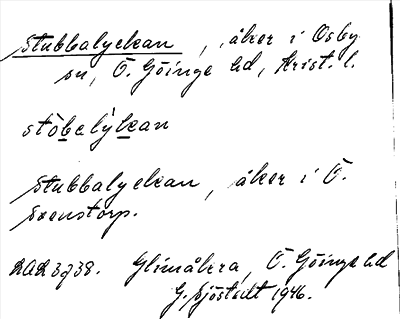 Stubbalyckan, åker i Osby
sn, Ö. Göinge hd, Krist. l.
stòbelýkan
Stubbalyckan, åker i Ö.
Svenstorp.
LAL 3938. Glimåkra, Ö. Göinge hd
G. Sjöstedt 1946.